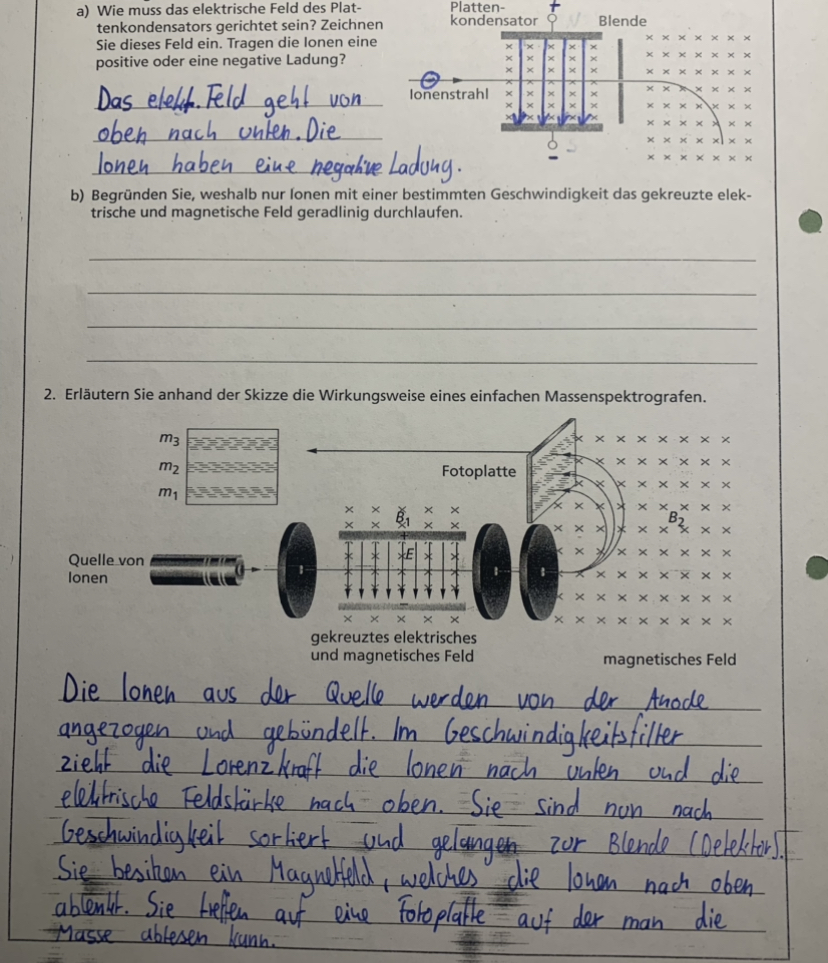 a) Wie muss das elektrische Feld des Plat-
tenkondensators gerichtet sein? Zeichnen
Sie dieses Feld ein. Tragen die Ionen eine
positive oder eine negative Ladung?
Das elekt. Feld geht von
oben nach unten. Die
Ionen haben eine negative Ladung.
Platten-
kondensator
+
Blende
Ionenstrahl
-
b) Begründen Sie, weshalb nur Ionen mit einer bestimmten Geschwindigkeit das gekreuzte elek-
trische und magnetische Feld geradlinig durchlaufen.
2. Erläutern Sie anhand der Skizze die Wirkungsweise eines einfachen Massenspektrografen.
m3
m2
m1
Fotoplatte
B1
B2
+
E
-
Quelle von
Ionen
gekreuztes elektrisches
und magnetisches Feld
magnetisches Feld
Die Ionen aus der Quelle werden von der Anode
angezogen und gebündelt. Im Geschwindigkeitsfilter
zieht die Lorenzkraft die Ionen nach unten und die
elektrische Feldstärke nach oben. Sie sind nun nach
Geschwindigkeit sortiert und gelangen zur Blende (Detektor).
Sie besitzen ein Magnetfeld, welches die Ionen nach oben
ablenkt. Sie treffen auf eine Fotoplatte auf der man die
Masse ablesen kann.